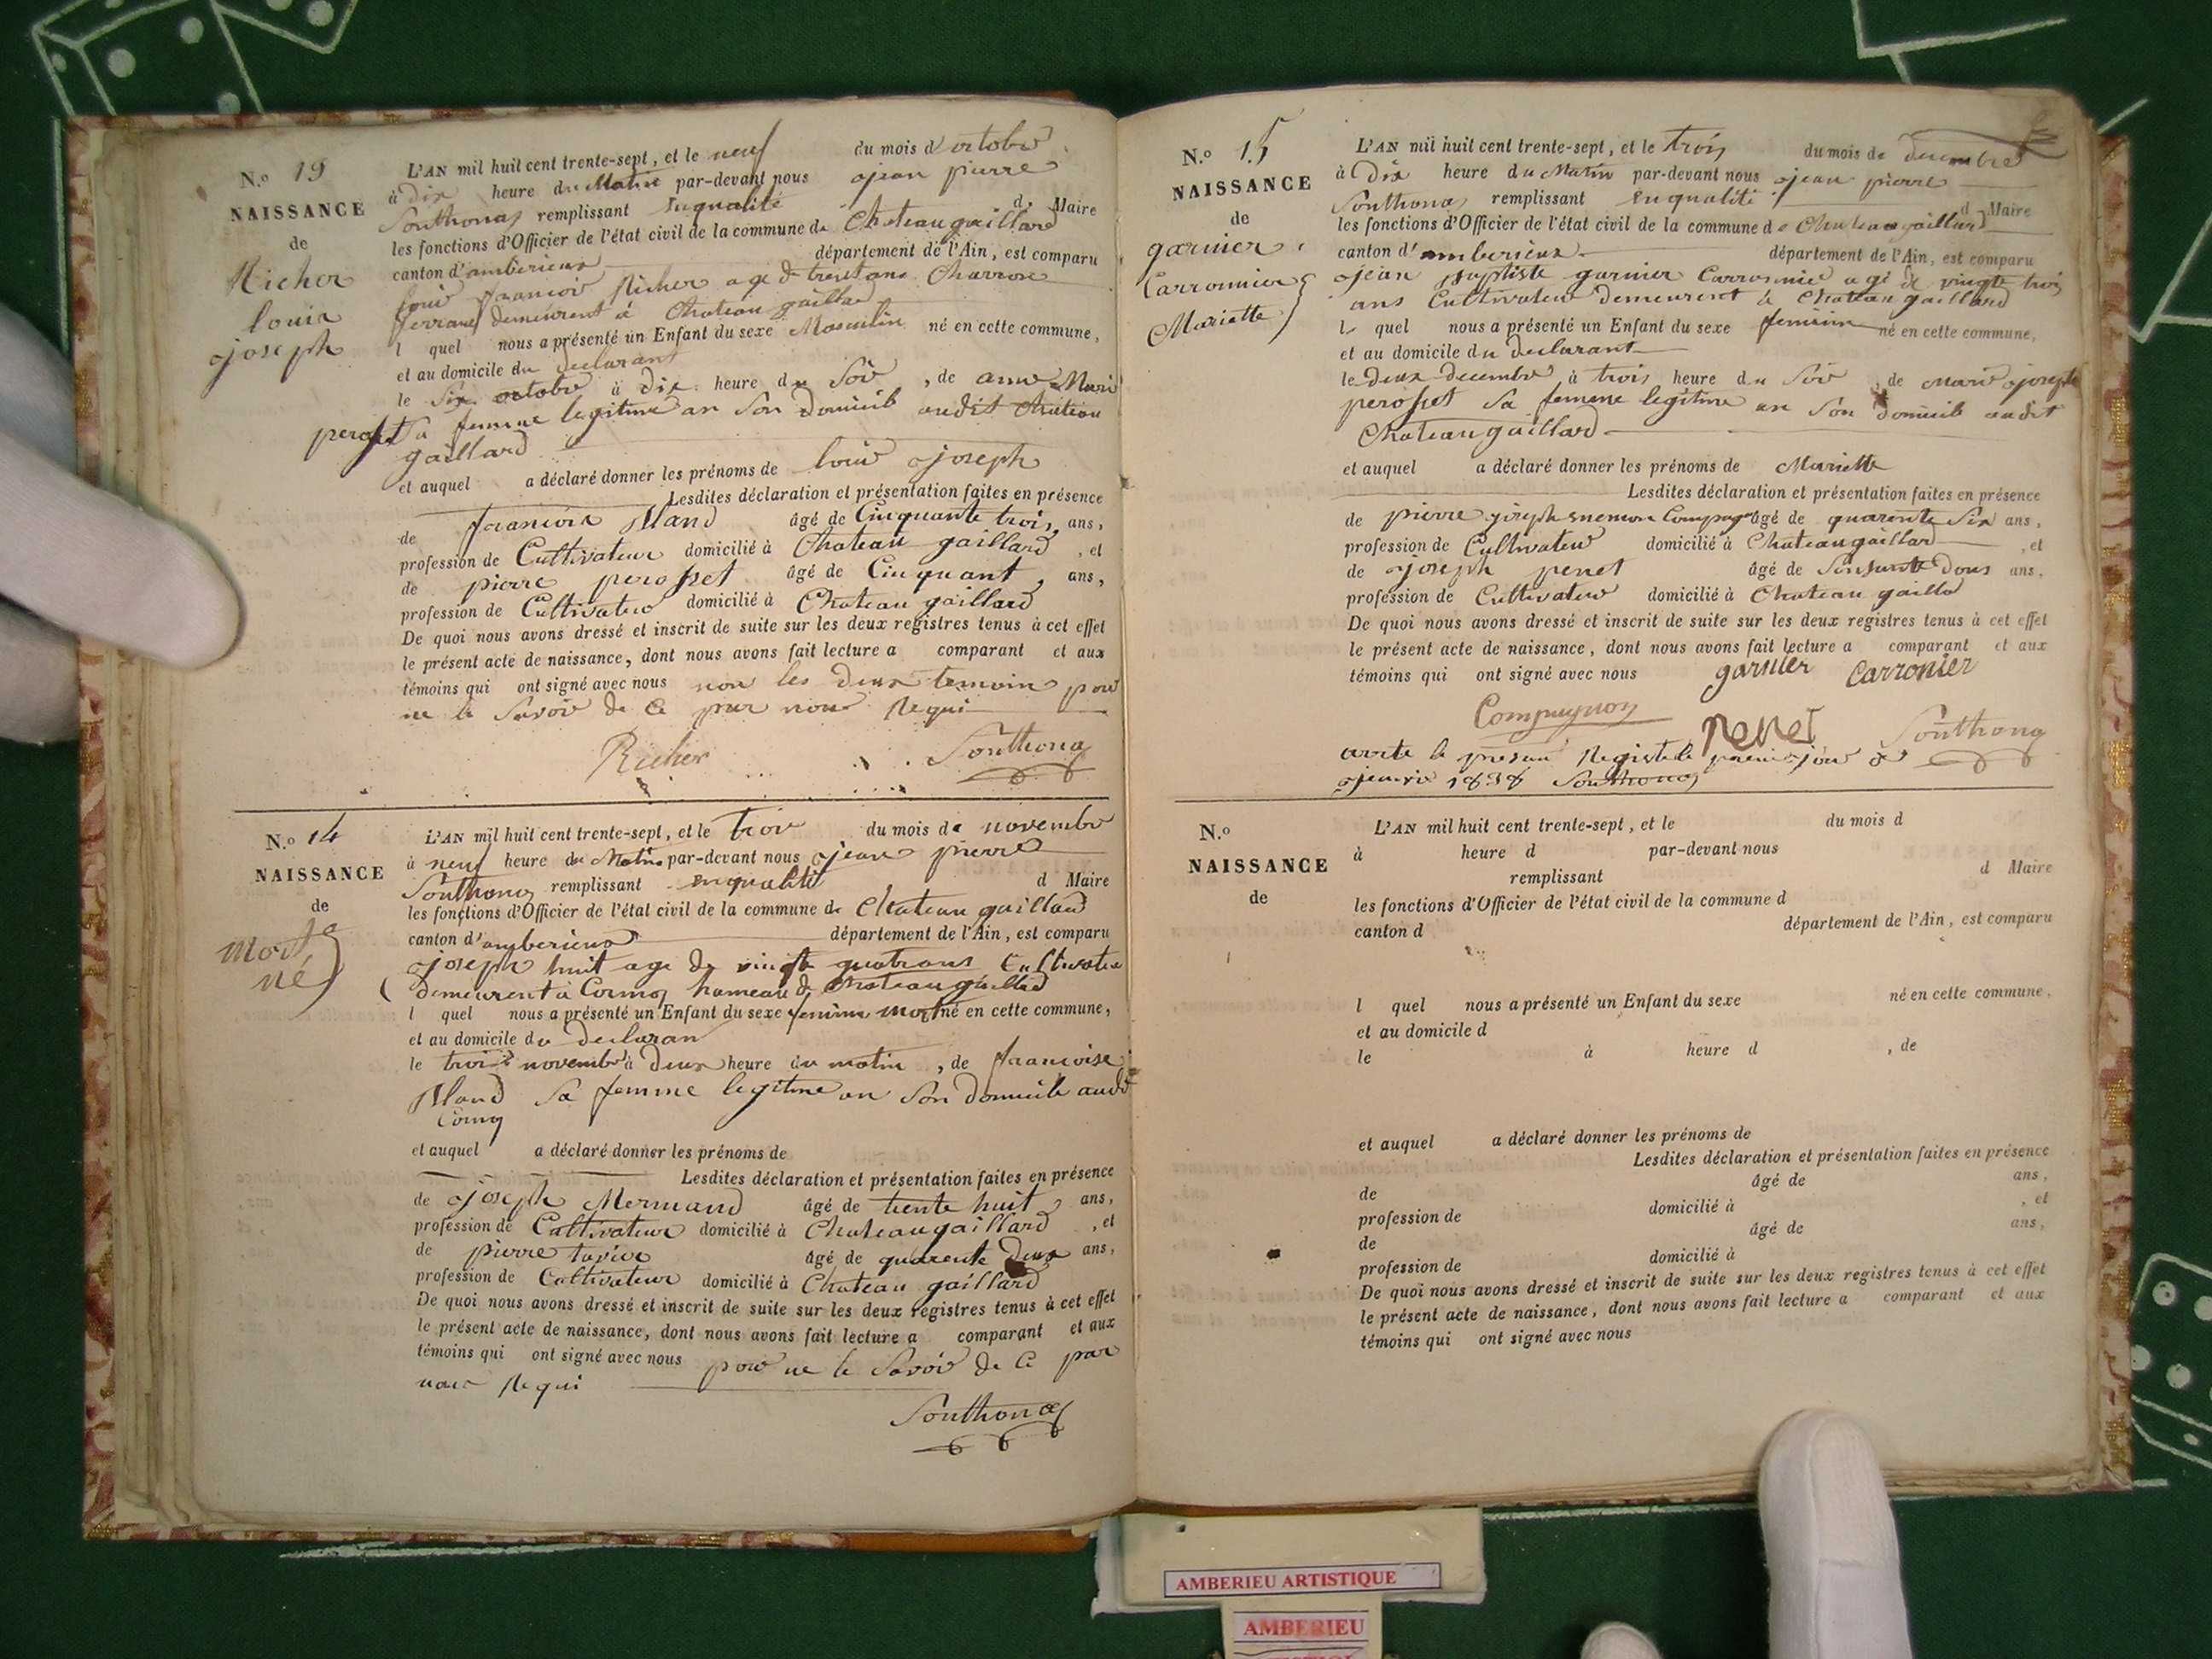 N.o 19
NAISSANCE
de
Richer
louis
joseph
L'AN mil huit cent trente-sept, et le neuf du mois d'octobre
à dix heure du Matin par-devant nous jean pierre
Southonas remplissant Inqualité d. Maire
les fonctions d'Officier de l'état civil de la commune de Chateau gaillard
canton d'amberieux département de l'Ain, est comparu
louis francois Richer age de trent ans Charron
demeurent à Chateau gaillar
l quel nous a présenté un Enfant du sexe Masculin né en cette commune,
et au domicile du declarant
le Six octobre à dix heure du Soir, de anne Marie
perosset Sa femme legitime an Son domicile audit Chateau
gaillard
et auquel a déclaré donner les prénoms de louis joseph
Lesdites déclaration et présentation faites en présence
de francois Mand âgé de Cinquante trois, ans,
profession de Cultivateur domicilié à Chateau gaillard, et
de pierre perosset âgé de Cinquant, ans,
profession de Cultivateur domicilié à Chateau gaillard
De quoi nous avons dressé et inscrit de suite sur les deux registres tenus à cet effet
le présent acte de naissance, dont nous avons fait lecture a comparant et aux
témoins qui ont signé avec nous non les deux temoin pour
ne le Savoir de Ce par nous Requi
Richer Southonas
N.o 14
NAISSANCE
de
Mort
né
L'AN mil huit cent trente-sept, et le trois du mois de novembre
à neuf heure du Matin par-devant nous jean pierre
Southonas remplissant enqualité d Maire
les fonctions d'Officier de l'état civil de la commune de Chateau gaillard
canton d'amberieux département de l'Ain, est comparu
joseph huit age de vingt quatrans Cultivateur
demeurent à Cormoz hameau de Chateau gaillard
l quel nous a présenté un Enfant du sexe feminin mort né en cette commune,
et au domicile du declaran
le trois novembre à deux heure du matin, de francoise
Mand Sa femme legitime an Son domicile audit
Cormoz
et auquel a déclaré donner les prénoms de
Lesdites déclaration et présentation faites en présence
de joseph Mermand âgé de trente huit, ans,
profession de Cultivateur domicilié à Chateau gaillard, et
de pierre tavier âgé de quarente deux ans,
profession de Cultivateur domicilié à Chateau gaillard
De quoi nous avons dressé et inscrit de suite sur les deux registres tenus à cet effet
le présent acte de naissance, dont nous avons fait lecture a comparant et aux
témoins qui ont signé avec nous pour ne le Savoir de Ce par
nous Requi
Southonas
N.o 15
NAISSANCE
de
garnier
Carronnier
Mariette
L'AN mil huit cent trente-sept, et le trois du mois de decembre
à Dix heure du Matin par-devant nous jean pierre
Southonas remplissant enqualité d Maire
les fonctions d'Officier de l'état civil de la commune de Chateau gaillard
canton d'amberieux département de l'Ain, est comparu
jean baptiste garnier Carronnier agé de vingte trois
ans Cultivateur demeurent à Chateau gaillard
le quel nous a présenté un Enfant du sexe feminin né en cette commune,
et au domicile du declarant
le deux decembre à trois heure du Soir, de marie joseph
perosset Sa femme legitime an Son domicile audit
Chateau gaillard
et auquel a déclaré donner les prénoms de Mariette
Lesdites déclaration et présentation faites en présence
de pierre joseph Compagnon âgé de quarente Six ans,
profession de Cultivateur domicilié à Chateau gaillard, et
de joseph penet âgé de Soisante Dous ans,
profession de Cultivateur domicilié à Chateau gailla
De quoi nous avons dressé et inscrit de suite sur les deux registres tenus à cet effet
le présent acte de naissance, dont nous avons fait lecture a comparant et aux
témoins qui ont signé avec nous garnier Carronier
Compagnon penet Southonas
arrete le presant Registe le premier jour de
jenvie 1838 Southonas
N.o
NAISSANCE
de
L'AN mil huit cent trente-sept, et le du mois d
à heure d par-devant nous
remplissant d Maire
les fonctions d'Officier de l'état civil de la commune d
canton d département de l'Ain, est comparu
l quel nous a présenté un Enfant du sexe né en cette commune,
et au domicile d
le à heure d , de
et auquel a déclaré donner les prénoms de
Lesdites déclaration et présentation faites en présence
de âgé de ans,
profession de domicilié à , et
de âgé de ans,
profession de domicilié à
De quoi nous avons dressé et inscrit de suite sur les deux registres tenus à cet effet
le présent acte de naissance, dont nous avons fait lecture a comparant et aux
témoins qui ont signé avec nous
AMBERIEU ARTISTIQUE
AMBERIEU